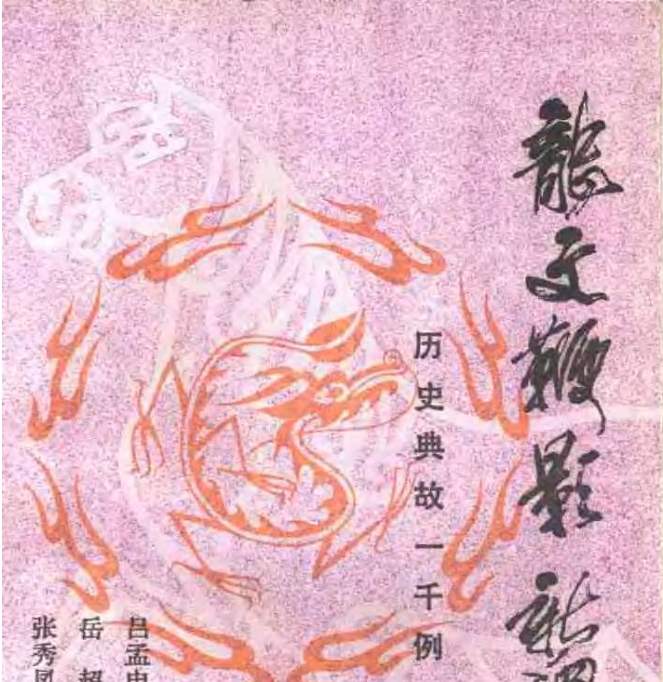 龍文鞭影 新
历史典故一千例
吕孟
岳超
张秀凤